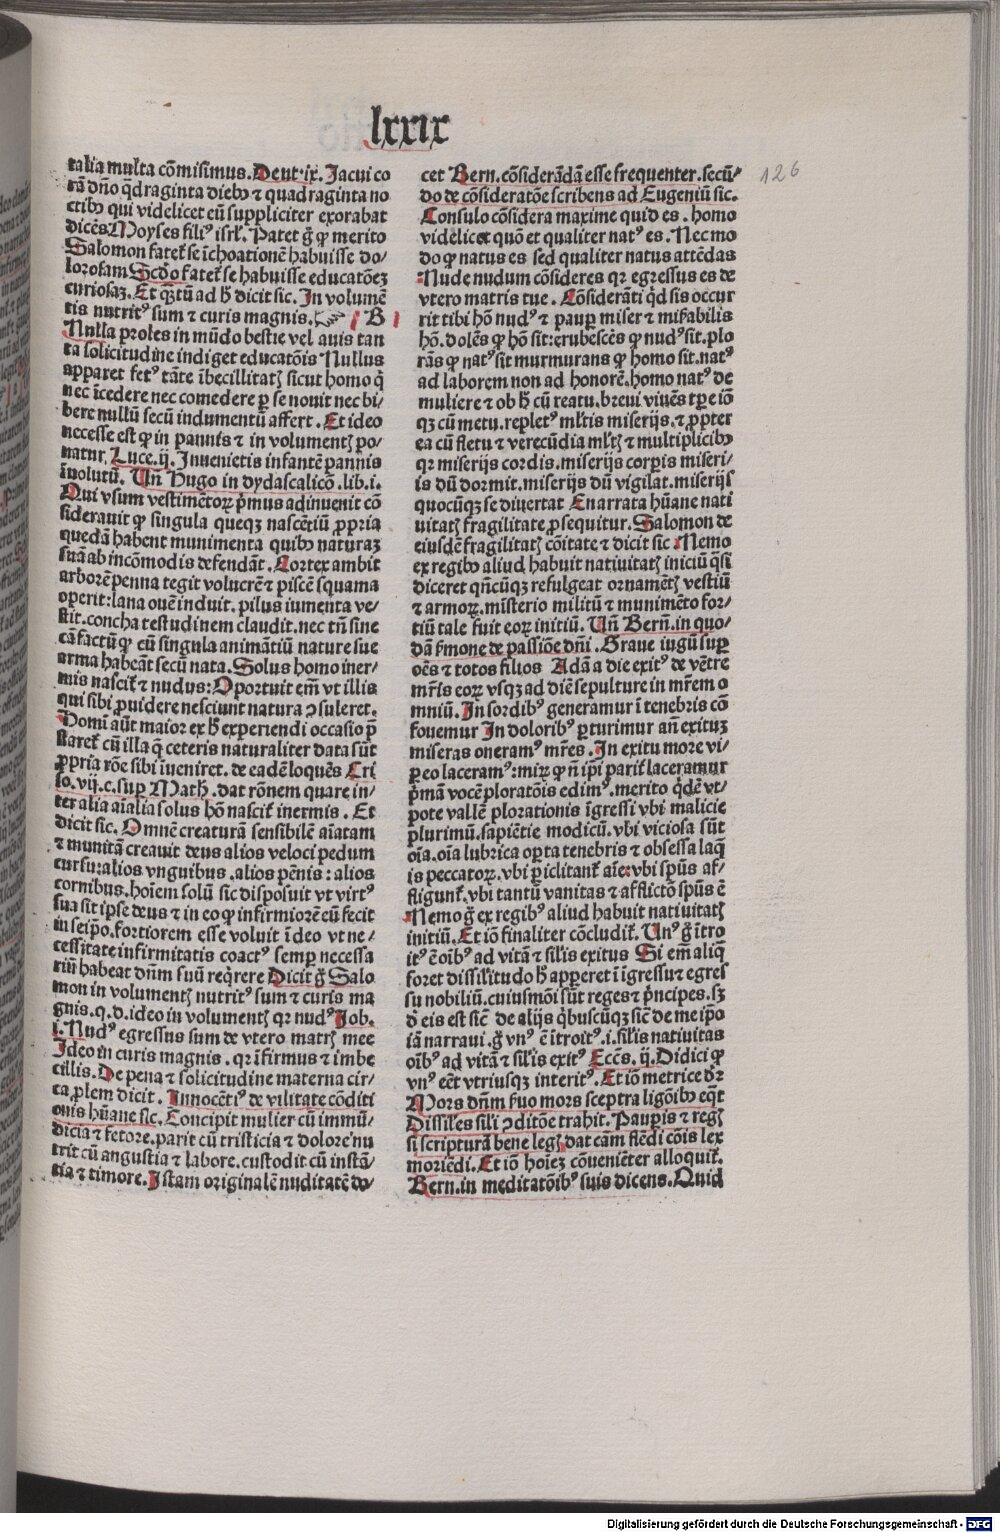 lxxix
126
talia multa cōmisimus. Deut. ix. Jacui co
rā dño q̄draginta dieb⁹ ⁊ quadraginta no
ctib⁹ qui videlicet cū suppliciter exorabat
dicēs Moyses fili⁹ isrl̄. Patet g̊ ꝙ merito
Salomon fatet̄ se īchoationē habuisse do/
lorosam Scd̄o fatet̄ se habuisse educatōeꝫ
curiosaꝫ. Et qꝫtū ad h̄ dicit sic. In volumē
tis nutrit⁹ sum ⁊ curis magnis. ☞ B
Nulla proles in mūdo bestie vel auis tan
ta solicitudine indiget educatōis Nullus
apparet fet⁹ tāte ībecillitatꝭ sicut homo q̄
nec īcedere nec comedere ꝑ se nouit nec bi/
bere nullū secū indumentū affert. Et ideo
necesse est ꝙ in pannis ⁊ in volumentꝭ po/
natur. Luce. ij. Inuenietis infantē pannis
īuolutū. Vn̄ Hugo in dydascalicō. lib. i.
Qui vsum vestimētoꝝ p̄mus adinuenit cō
siderauit ꝙ singula queqꝫ nascētiū ꝓpria
quedā habent munimenta quib⁹ naturaꝫ
suā ab incōmodis defendāt. Cortex ambit
arborē penna tegit volucrē ⁊ piscē squama
operit: lana ouē induit. pilus iumenta ve/
stit. concha testudinem claudit. nec tn̄ sine
cā factū ꝙ cū singula animātiū nature sue
arma habeāt secū nata. Solus homo iner/
mis nascit̄ ⁊ nudus: Oportuit em̄ vt illis
qui sibi ꝓuidere nesciunt natura ꝯsuleret.
Domī aūt maior ex h̄ experiendi occasio p̄
staret̄ cū illa q̄ ceteris naturaliter data sūt
ꝓpria rōe sibi īueniret. de eadē loquēs Cri
so. vij. c. suꝑ Math̄. dat rōnem quare in/
ter alia aīalia solus hō nascit̄ inermis. Et
dicit sic. Omnē creaturā sensibilē aīatam
⁊ munitā creauit deus alios veloci pedum
cursu: alios vnguibus. alios pēnis: alios
cornibus. hoīem solū sic disposuit vt virt⁹
sua sit ipse deus ⁊ in eo ꝙ infirmiorē cū fecit
in seip̄o. fortiorem esse voluit ī deo vt ne/
cessitate infirmitatis coact⁹ semꝑ necessa
riū habeat dn̄m suū req̄rere Dicit g̊ Salo
mon in volumentꝭ nutrit⁹ sum ⁊ curis ma
gnis. q. d. ideo in volumentꝭ qꝛ nud⁹ Job.
i. Nud⁹ egressus sum de vtero matrꝭ mee
Ideo in curis magnis. qꝛ īfirmus ⁊ imbe
cillis. De pena ⁊ solicitudine materna cir/
ca ꝓlem dicit. Innocēti⁹ de vilitate cōditi
onis hūane sic. Concipit mulier cū immū/
dicia ⁊ fetore. parit cū tristicia ⁊ dolore nu
trit cū angustia ⁊ labore. custodit cū instā/
tia ⁊ timore. Istam originalē nuditatē do/
cet Bern. cōsiderādā esse frequenter. secū/
do de cōsideratōe scribens ad Eugeniū sic.
Consulo cōsidera maxime quid es. homo
videlicet quō et qualiter nat⁹ es. Nec mo
do ꝙ natus es sed qualiter natus attēdas
Nude nudum cōsideres qꝛ egressus es de
vtero matris tue. Cōsiderāti q̄d sis occur
rit tibi hō nud⁹ ⁊ pauꝑ miser ⁊ mis̄abilis
hō. dolēs ꝙ hō sit: erubescēs ꝙ nud⁹ sit. plo
rās ꝙ nat⁹ sit murmurans ꝙ homo sit. nat⁹
ad laborem non ad honorē. homo nat⁹ de
muliere ⁊ ob h̄ cū reatu. breui viuēs tꝑe iō
qꝫ cū metu. replet⁹ ml̄tis miserijs. ⁊ ꝓpter
ea cū fletu ⁊ verecūdia ml̄tꝭ ⁊ multiplicib⁹
qꝛ miserijs cordis. miserijs corꝑis miseri/
is dū dormit. miserijs dū vigilat. miserijs
quocūqꝫ se diuertat Enarrata hūane nati
uitatꝭ fragilitate ꝓsequitur. Salomon de
eiusdē fragilitatꝭ cōitate ⁊ dicit sic Nemo
ex regib⁹ aliud habuit natiuitatꝭ iniciū q̄si
diceret qn̄cūqꝫ refulgeat ornamētꝭ vestiū
⁊ armoꝝ. mīsterio militū ⁊ munimēto for/
tiū tale fuit eoꝝ initiū. Vn̄ Bern̄. in quo/
dā s̄mone de passiōe dn̄i. Graue iugū suꝑ
oēs ⁊ totos filios Adā a die exit⁹ de vētre
mr̄is eoꝝ vsqꝫ ad diē sepulture in mr̄em o
mniū. In sordib⁹ generamur ī tenebris cō
fouemur In dolorib⁹ ꝑturimur an̄ exituꝫ
miseras oneram⁹ mr̄es. In exitu more vi/
ꝑeo laceram⁹: miꝝ ꝙ n̄ ip̄i parit̄ laceramur
p̄mā vocē ploratōis edim⁹. merito q̄dē vt/
pote vallē plorationis īgressi vbi malicie
plurimū. sapiētie modicū. vbi viciosa sūt
oīa. oīa lubrica oꝑta tenebris ⁊ obsessa laq̄
is peccatoꝝ. vbi ꝑiclitant̄ aīe: vbi sp̄ūs af/
fligunt̄. vbi tantū vanitas ⁊ afflictō sp̄ūs ē
Nemo g̊ ex regib⁹ aliud habuit natiuitatꝭ
initiū. Et iō finaliter cōcludit̄. Vn⁹ g̊ ītro
it⁹ ē oīb⁹ ad vitā ⁊ sil̄is exitus Si em̄ aliq̄
foret dissil̄itudo h̄ apꝑeret ī īgressu ⁊ egres
su nobiliū. cuiusmōi sūt reges ⁊ p̄ncipes. sꝫ
d̄ eis est sic̄ de alijs q̄buscūqꝫ sic̄ de me ip̄o
iā narraui. g̊ vn⁹ ē ītroit⁹. i. sil̄is natiuitas
oīb⁹ ad vitā ⁊ sil̄is exit⁹ Ecc̄s. ij. Didici ꝙ
vn⁹ eēt vtriusqꝫ interit⁹. Et iō metrice dr̄
Mors dn̄m s̄uo mors sceptra ligōib⁹ eq̄t
Dissil̄es sil̄i ꝯditōe trahit. Pauꝑis ⁊ regꝭ
si scripturā bene legꝭ dat cām flēdi cōis lex
moriēdi. Et iō hoīeꝫ cōueniēter alloquit̄.
Bern. in meditatōib⁹ suis dicens. Quid
Digitalisierung gefördert durch die Deutsche Forschungsgemeinschaft - DFG